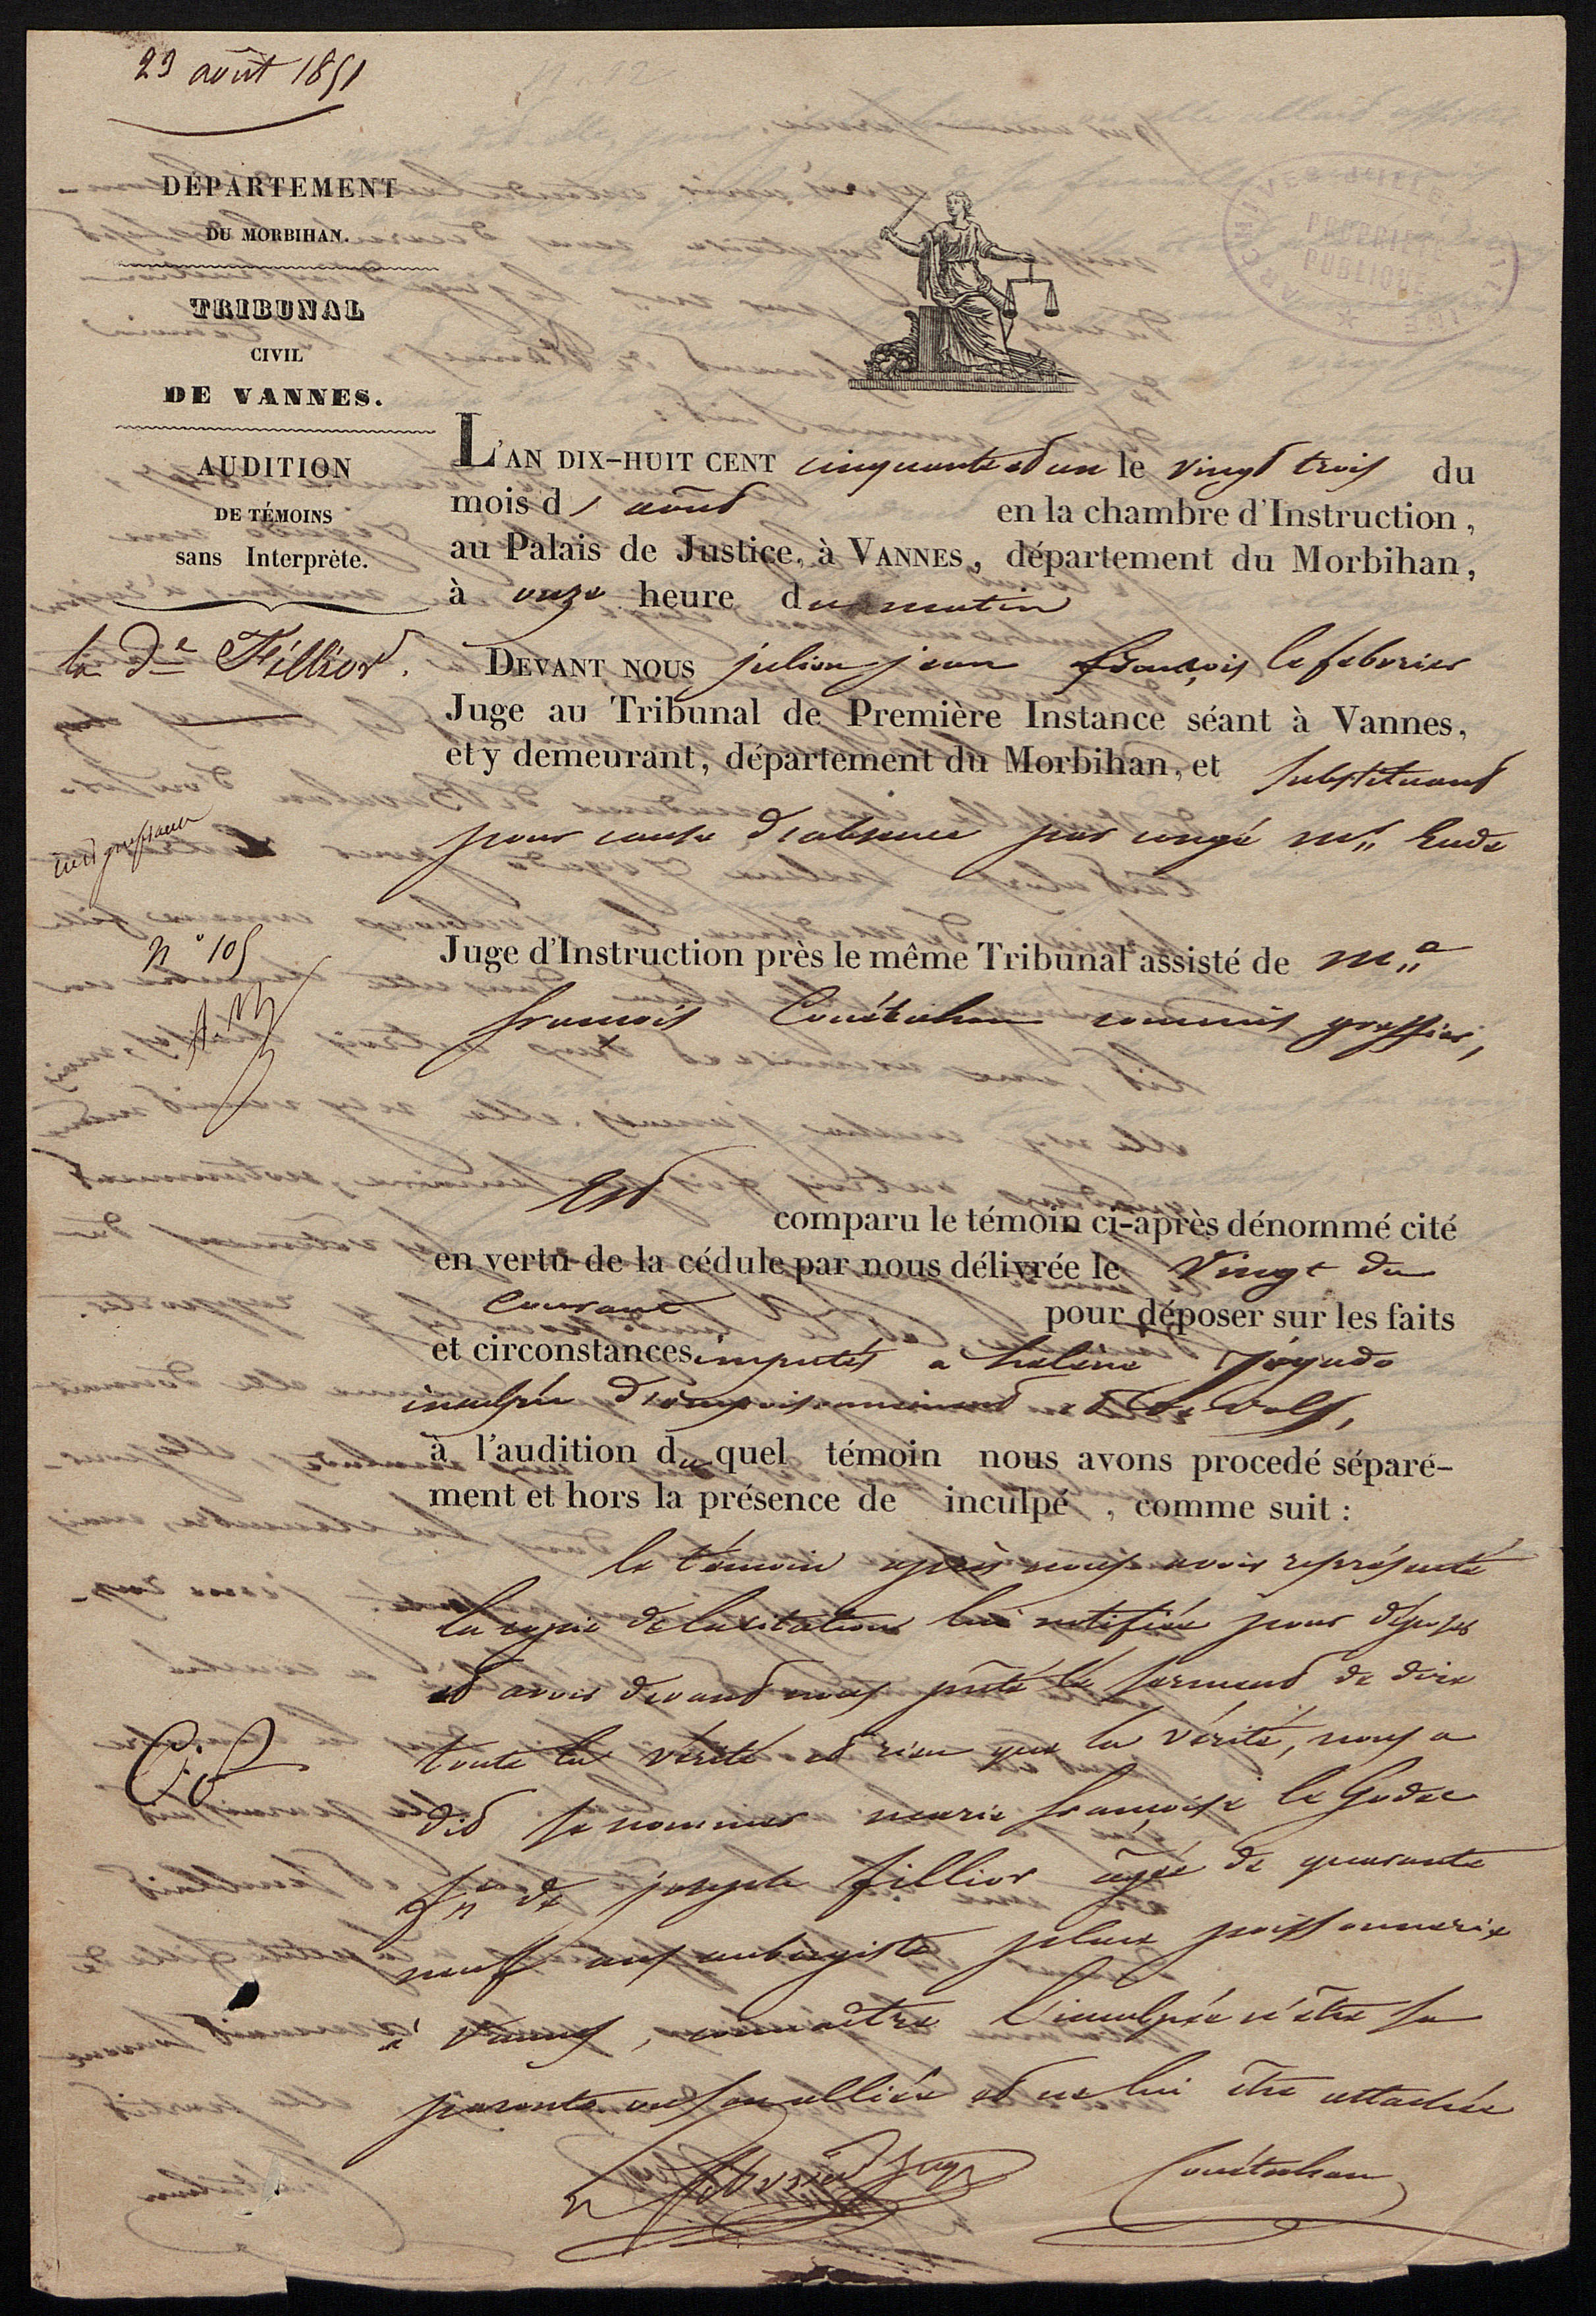 23 août 1851
DÉPARTEMENT
DU MORBIHAN.
TRIBUNAL
CIVIL
DE VANNES.
AUDITION
DE TÉMOINS
sans Interprète.
la De Fillior.
N° 105
ARCHIVES D'ILLE
PROPRIÉTÉ
PUBLIQUE
L'AN DIX-HUIT CENT cinquante et un le vingt trois du
mois d' août en la chambre d'Instruction,
au Palais de Justice, à VANNES, département du Morbihan,
à onze heure du matin
DEVANT NOUS julien jean françois le febvrier
Juge au Tribunal de Première Instance séant à Vannes,
et y demeurant, département du Morbihan, et substituant
pour cause d'absence par congé Mr Eude
Juge d'Instruction près le même Tribunal assisté de Me
francois Couëtuhan commis greffier,
Est
comparu le témoin ci-après dénommé cité
en vertu de la cédule par nous délivrée le Vingt du
Courant pour déposer sur les faits
et circonstances imputés a helène Jégado
inculpée d'empoisonnement et de vols,
à l'audition du quel témoin nous avons procedé séparé-
ment et hors la présence de inculpé , comme suit :
le témoin après nous avoir représenté
la copie de la citation lui notifiée pour déposer
et avoir devant nous prêté le serment de dire
toute la vérité et rien que la vérité, nous a
dit se nommer marie françoise le Godec
fe de joseph fillior âgée de quarante
neuf ans aubergiste place poissonnerie
à Vannes, connaître l'inculpée n'être sa
parente ou son alliée et ne lui être attachée
Le febvrier juge
Couëtuhan